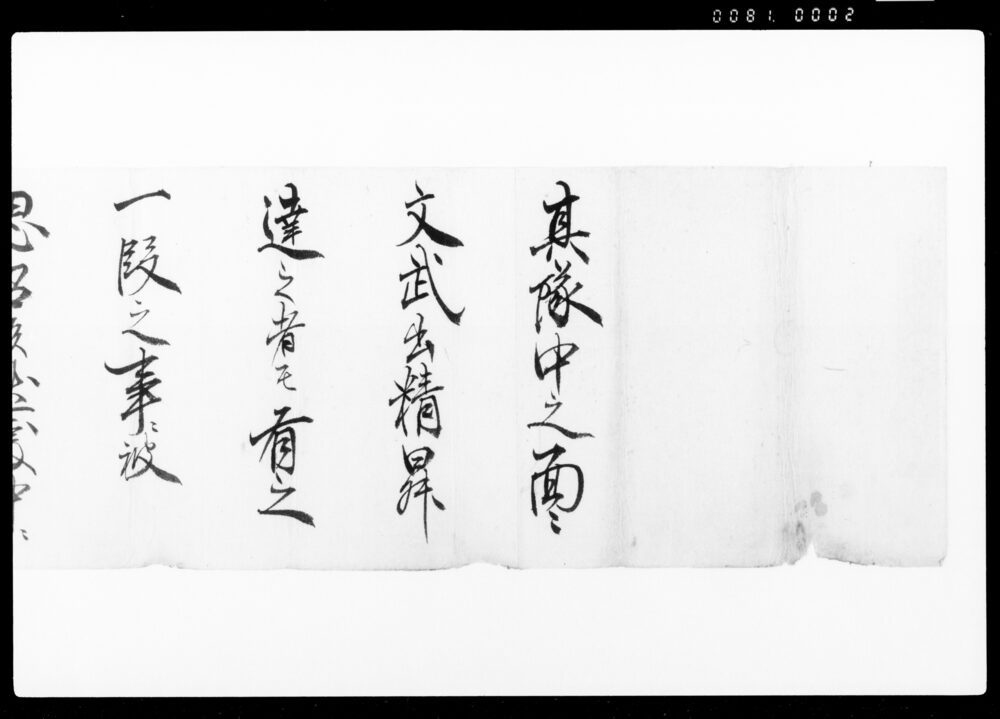 0081. 0002
其隊中之面々
文武出精昇
達之者も有之
一段之事ニ被
思召候